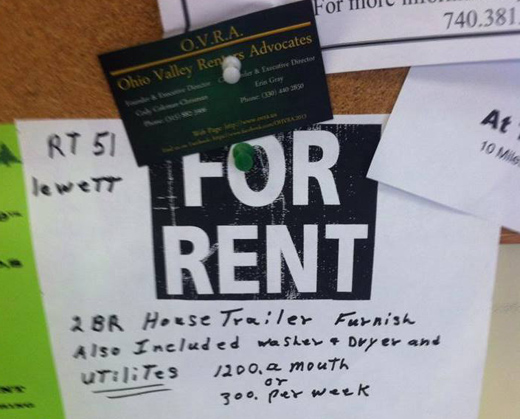 For more
740.381
O.V.R.A.
Ohio Valley Renters Advocates
Founder & Executive Director
& Executive Director
Erin Gray
Phone: (330) 440 2830
Web Page: http://www.ovra.us
At
10 Mile
RT 51
Jewett
FOR
RENT
2 BR House Trailer Furnish
Also Included washer + Dryer and
UTiliTes 1200. a mouth
or
300. per week
NT